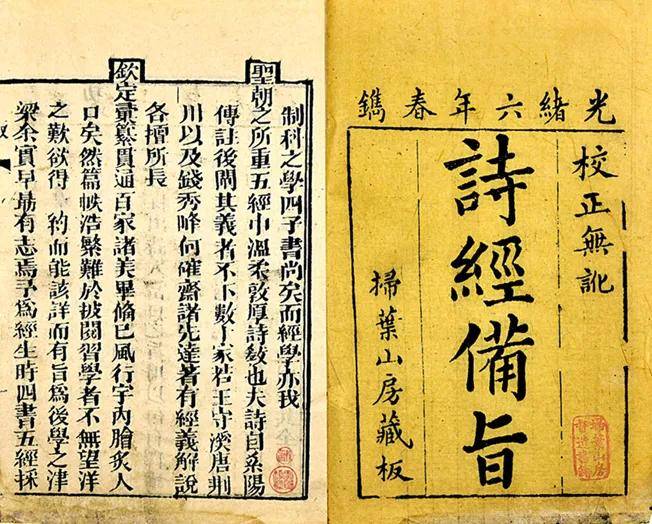 光緒六年春鐫
校正無訛
詩經備旨
掃葉山房藏板
制科之學四子書尚矣而經學亦我
聖朝之所重五經中溫柔敦厚詩敎也夫詩自紫陽
傳註後闡其義者不下數十家若王守溪唐荆
川以及錢秀峰何確齋諸先達著有經義解說
各擅所長
欽定彙纂貫通百家諸美畢僃已風行宇內膾炙人
口矣然篇帙浩繁難於披閱習學者不無望洋
之歎欲得 約而能該詳而有旨爲後學之津
梁余實早有志焉予爲經生時四書五經採